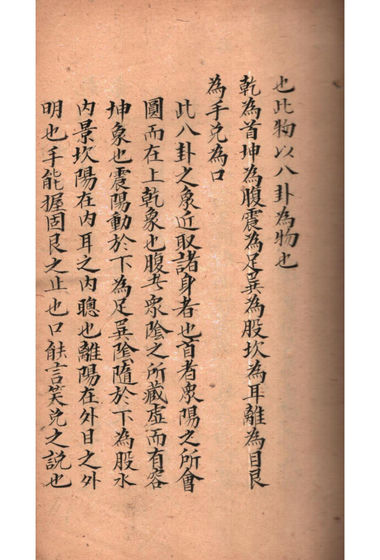 也此物以八卦為物也
乾為首坤為腹震為足巽為股坎為耳離為目艮
為手兌為口
此八卦之象近取諸身者也首者衆陽之所會
圓而在上乾象也腹者衆陰之所藏虛而有容
坤象也震陽動於下為足巽陰隨於下為股水
內景坎陽在內耳之內聰也離陽在外目之外
明也手能握固艮之止也口能言笑兌之說也